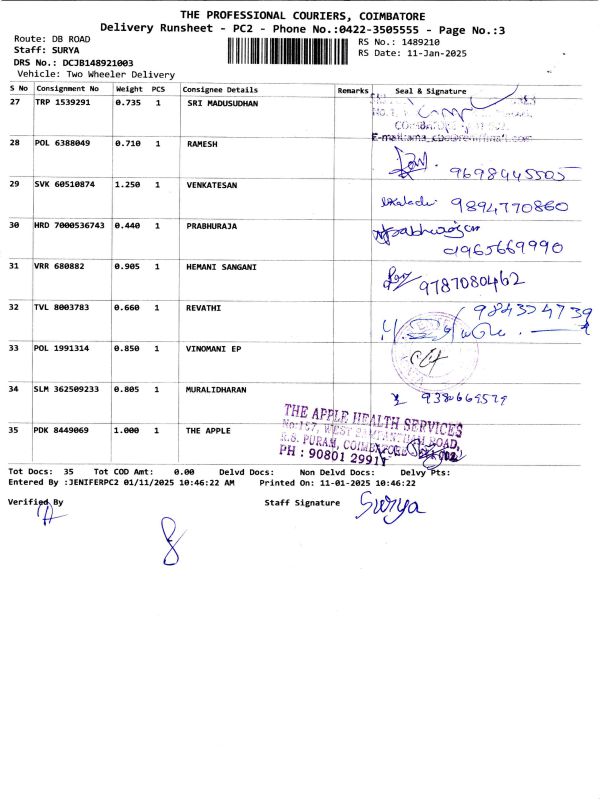 THE PROFESSIONAL COURIERS, COIMBATORE
Delivery Runsheet - PC2 - Phone No.:0422-3505555 - Page No.:3
Route: DB ROAD
RS No.: 1489210
Staff: SURYA
RS Date: 11-Jan-2025
DRS No.: DCJB148921003
Vehicle: Two Wheeler Delivery
S No Consignment No Weight PCS Consignee Details Remarks Seal & Signature
27 TRP 1539291 0.735 1 SRI MADUSUDHAN
28 POL 6388049 0.710 1 RAMESH
9698445505
29 SVK 60510874 1.250 1 VENKATESAN
9894770860
30 HRD 7000536743 0.440 1 PRABHURAJA
9965669990
31 VRR 680882 0.905 1 HEMANI SANGANI
9787080462
32 TVL 8003783 0.660 1 REVATHI
33 POL 1991314 0.850 1 VINOMANI EP
34 SLM 362509233 0.805 1 MURALIDHARAN
35 PDK 8449069 1.000 1 THE APPLE
THE APPLE HEALTH SERVICES
R.S. PURAM, COIMBATORE
PH : 90801 29911
Tot Docs: 35 Tot COD Amt: 0.00 Delvd Docs: Non Delvd Docs: Delvy Pts:
Entered By :JENIFERPC2 01/11/2025 10:46:22 AM Printed On: 11-01-2025 10:46:22
Verified By
Staff Signature Surya